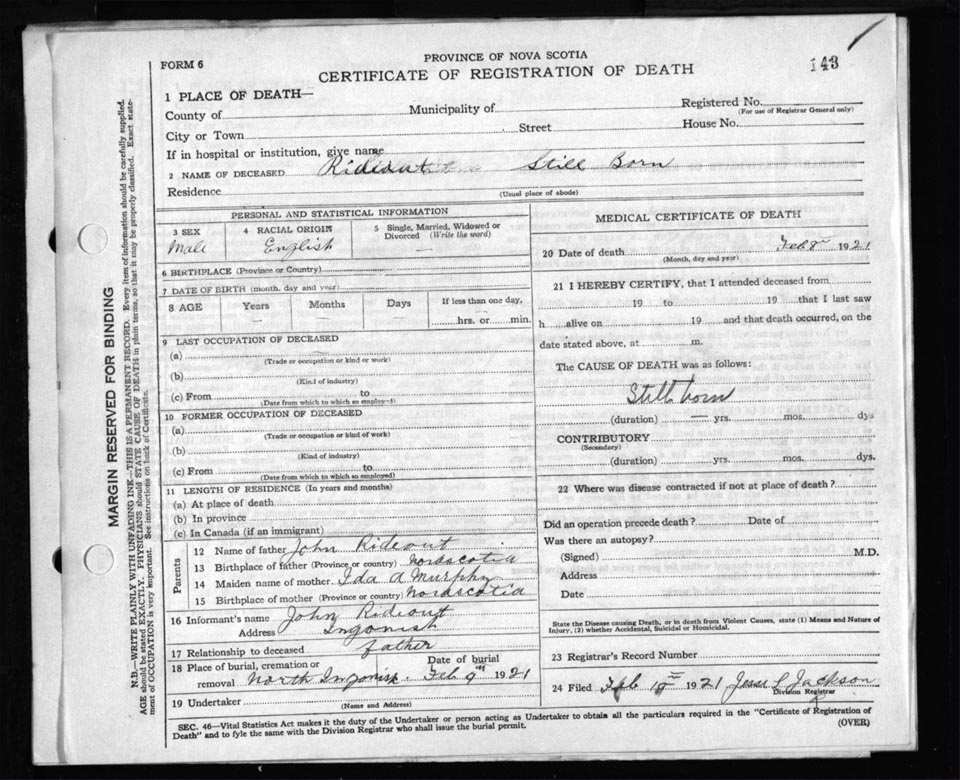 PROVINCE OF NOVA SCOTIA
FORM 6
CERTIFICATE OF REGISTRATION OF DEATH
143
1 PLACE OF DEATH—
County of Municipality of Registered No.
(For use of Registrar General only)
City or Town Street House No.
If in hospital or institution, give name
2 NAME OF DECEASED Rideout Still Born
Residence
(Usual place of abode)
PERSONAL AND STATISTICAL INFORMATION
3 SEX 4 RACIAL ORIGIN 5 Single, Married, Widowed or
Divorced (Write the word)
Male English —
6 BIRTHPLACE (Province or Country)
7 DATE OF BIRTH (month, day and year)
8 AGE Years Months Days If less than one day,
— — — hrs. or min.
9 LAST OCCUPATION OF DECEASED
(a)
(Trade or occupation or kind or work)
(b)
(Kind of industry)
(c) From to
(Date from which to which so employed)
10 FORMER OCCUPATION OF DECEASED
(a)
(Trade or occupation or kind of work)
(b)
(Kind of industry)
(c) From to
(Date from which to which so employed)
11 LENGTH OF RESIDENCE (In years and months)
(a) At place of death
(b) In province
(c) In Canada (if an immigrant)
Parents
12 Name of father John Rideout
13 Birthplace of father (Province or country) Novascotia
14 Maiden name of mother. Ida A Murphy
15 Birthplace of mother (Province or country) Novascotia
16 Informant's name John Rideout
Address Ingonish
17 Relationship to deceased father
18 Place of burial, cremation or Date of burial
removal North Ingonish. Feb 9th 1921
19 Undertaker
(Name and Address)
MEDICAL CERTIFICATE OF DEATH
20 Date of death Feb 8th 1921
(Month, day and year)
21 I HEREBY CERTIFY, that I attended deceased from
19 to 19 that I last saw
h alive on 19 and that death occurred, on the
date stated above, at m.
The CAUSE OF DEATH was as follows:
Still born
(duration) — yrs. mos. dys
CONTRIBUTORY
(Secondary)
(duration) yrs. mos. dys.
22 Where was disease contracted if not at place of death?
Did an operation precede death? Date of
Was there an autopsy?
(Signed) M.D.
Address
Date
State the Disease causing Death, or in death from Violent Causes, state (1) Means and Nature of
Injury, (2) whether Accidental, Suicidal or Homicidal.
23 Registrar's Record Number
24 Filed Feb 1921 Jackson
Division Registrar
SEC. 46—Vital Statistics Act makes it the duty of the Undertaker or person acting as Undertaker to obtain all the particulars required in the "Certificate of Registration of
Death" and to fyle the same with the Division Registrar who shall issue the burial permit. (OVER)
MARGIN RESERVED FOR BINDING
N.B.—WRITE PLAINLY WITH UNFADING INK—THIS IS A PERMANENT RECORD. Every item of information should be carefully supplied.
AGE should be stated EXACTLY. PHYSICIANS should STATE CAUSE OF DEATH in plain terms, so that it may be properly classified. Exact state-
ment of OCCUPATION is very important. See instructions on back of Certificate.